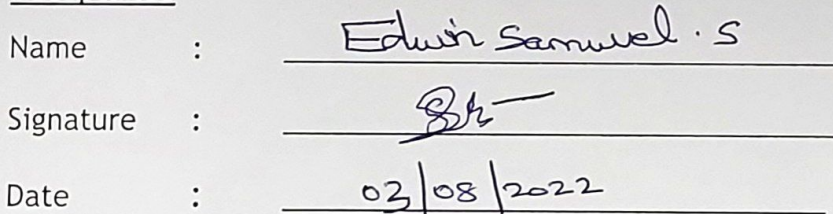 Name : Edwin Samuvel . S
Signature :
Date : 03/08/2022